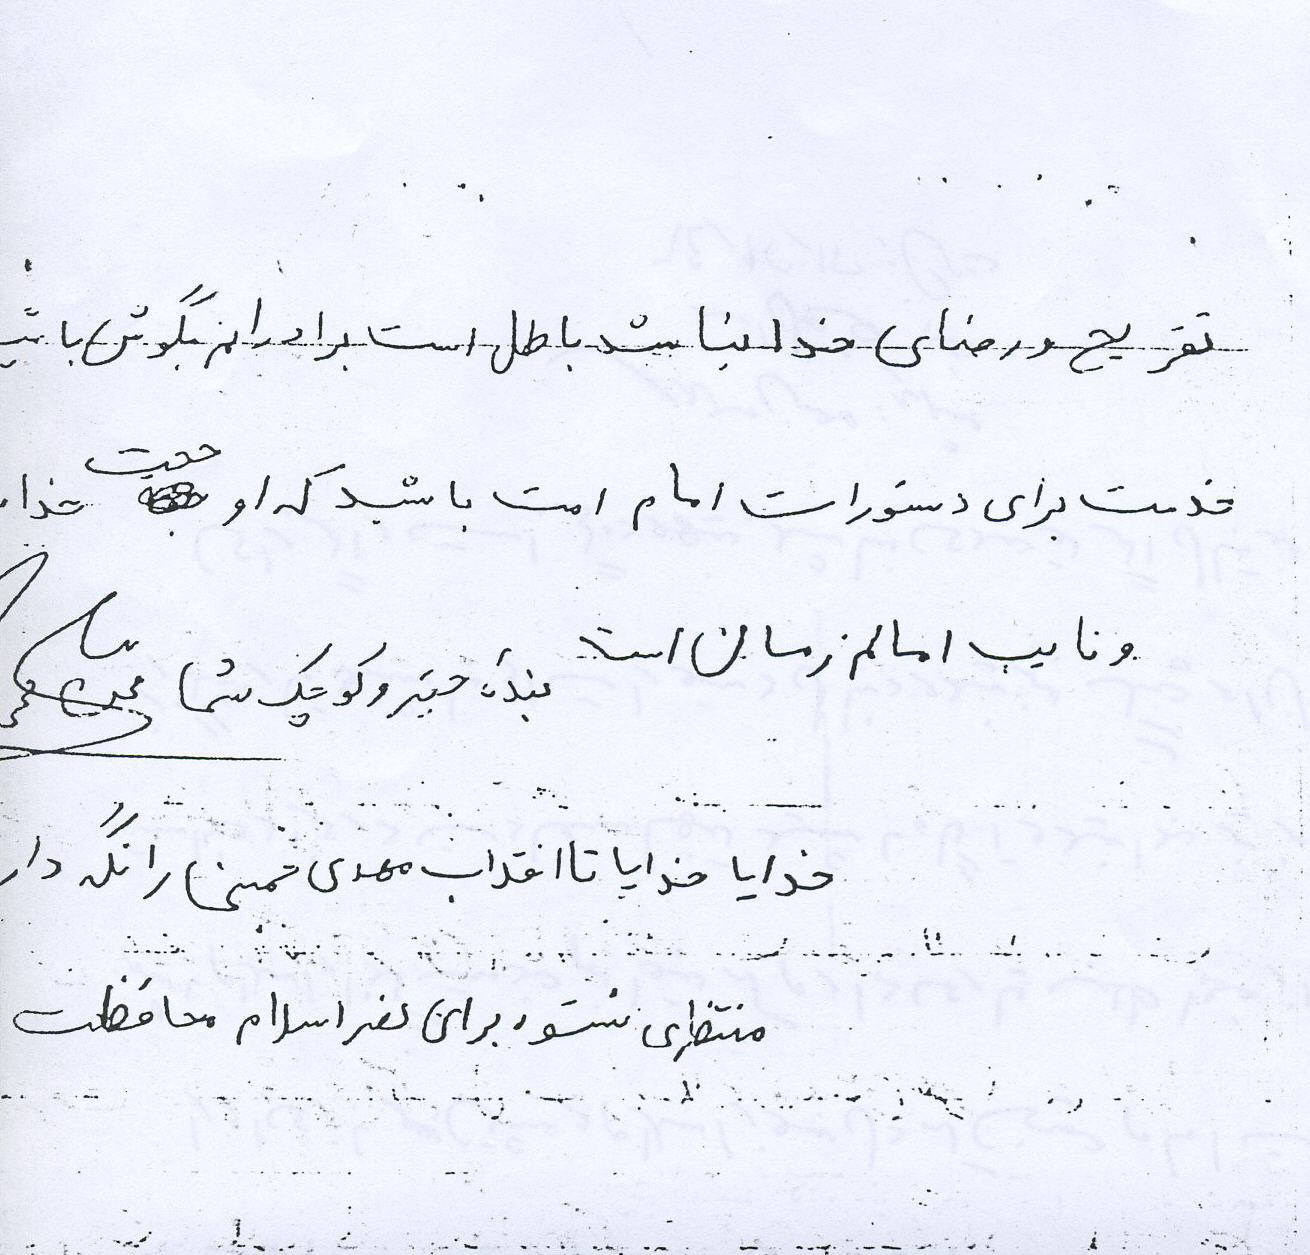 تفریح و رضای خدا نباشد باطل است برادرانم بگوش باشید
خدمت برای دستورات امام امت باشید که او حجت خدا
و نایب امام زمان است
بنده حقیر و کوچک شما
خدایا خدایا تا انقلاب مهدی خمینی را نگه دار
منتظری نستوه برای نصر اسلام محافظت